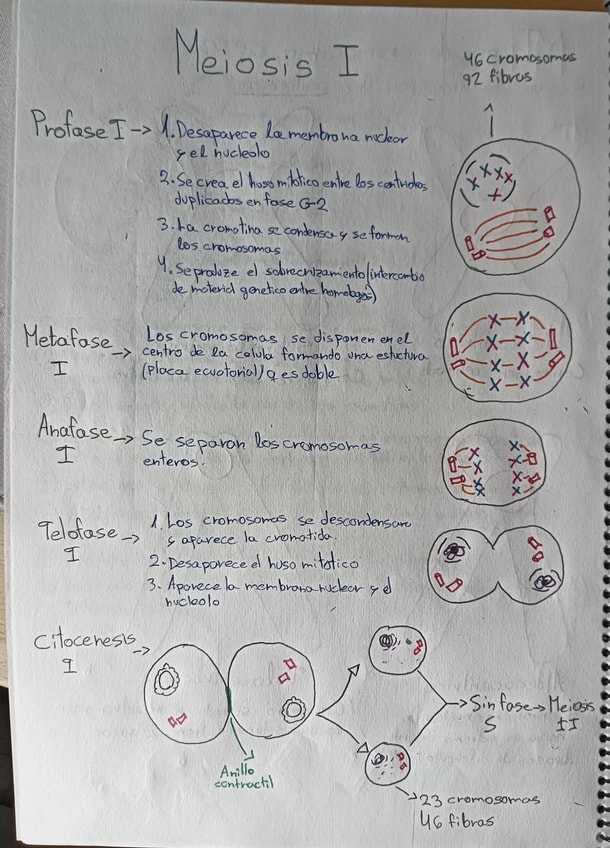 Meiosis I
46 cromosomas
92 fibras
Profase I → 1. Desaparece la membrana nuclear
y el nucleolo
2. Se crea el huso mitótico entre los centriolos
duplicados en fase G-2
3. La cromatina se condensa y se forman
los cromosomas
4. Se produze el sobrecruzamiento (intercambio
de material genetico entre homologos)
Metafase I → Los cromosomas se disponen en el
centro de la celula formando una estuctura
(placa ecuatorial) q es doble
Anafase I → Se separan los cromosomas
enteros.
Telofase I → 1. Los cromosomas se descondensan
y aparece la cromatida.
2. Desaparece el huso mitotico
3. Aparece la membrana nuclear y el
nucleolo
Citocenesis I →
→ Sin fase → Meiosis
S II
Anillo
contractil
23 cromosomas
46 fibras